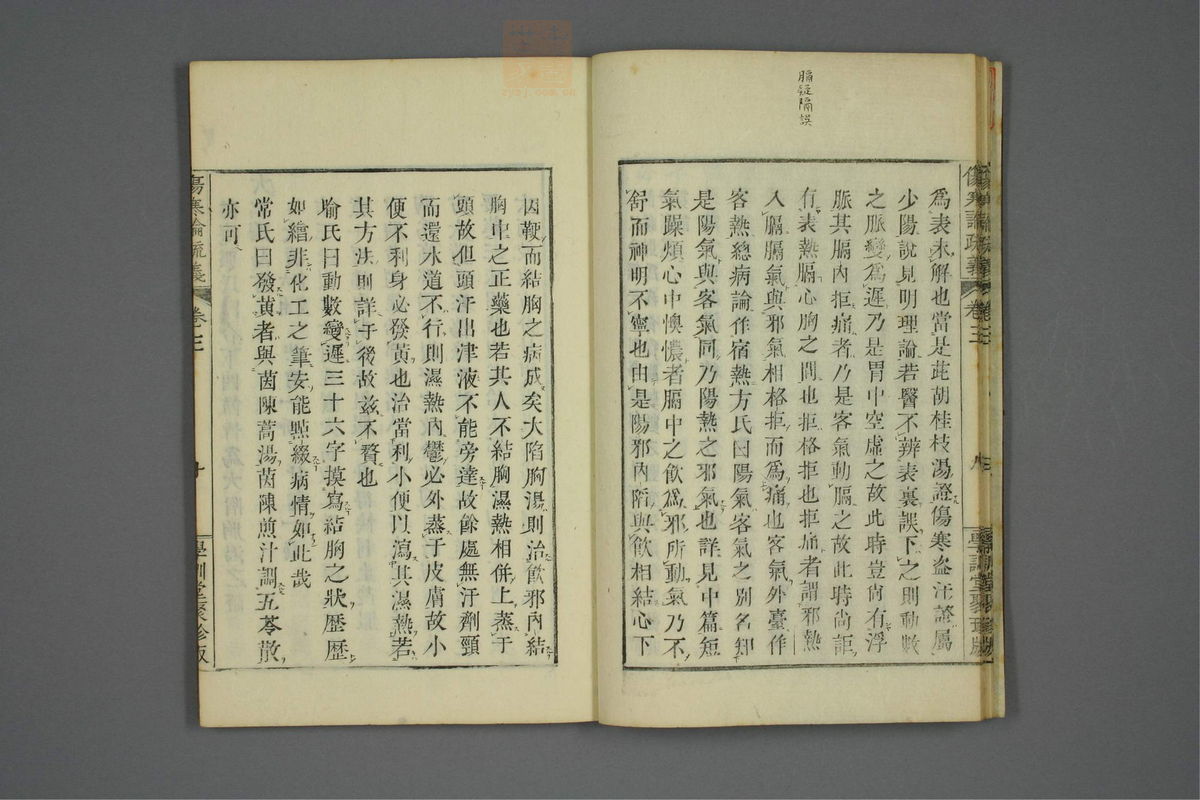 膈疑隔誤
爲表未解也當是茈胡桂枝湯證傷寒盗汗證屬
少陽說見明理論若醫不辨表裏誤下之則動數
之脈變爲遲乃是胃中空虛之故此時豈尚有浮
脈其膈內拒痛者乃是客氣動膈之故此時尚詎
有表熱膈心胸之間也拒格拒也拒痛者謂邪熱
入膈膈氣與邪氣相格拒而爲痛也客氣外臺作
客熱總病論作宿熱方氏曰陽氣客氣之別名知
是陽氣與客氣同乃陽熱之邪氣也詳見中篇短
氣躁煩心中懊憹者膈中之飮爲邪所動氣乃不
舒而神明不寧也由是陽邪內陷與飮相結心下
因鞕而結胸之病成矣大陷胸湯則治飮邪內結
胸中之正藥也若其人不結胸濕熱相併上蒸于
頭故但頭汗出津液不能旁達故餘處無汗劑頸
而還水道不行則濕熱內鬱必外蒸于皮膚故小
便不利身必發黃也治當利小便以瀉其濕熱若
其方法則詳于後故茲不贅也
喻氏曰動數變遲三十六字摸寫結胸之狀歷歷
如繪非化工之筆安能㸃綴病情如此哉
常氏曰發黃者與茵陳蒿湯茵陳煎汁調五苓散
亦可
傷寒論疏義
卷三
學訓堂聚珍版